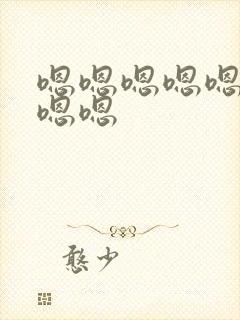 嗯嗯嗯嗯嗯
嗯嗯
憨少